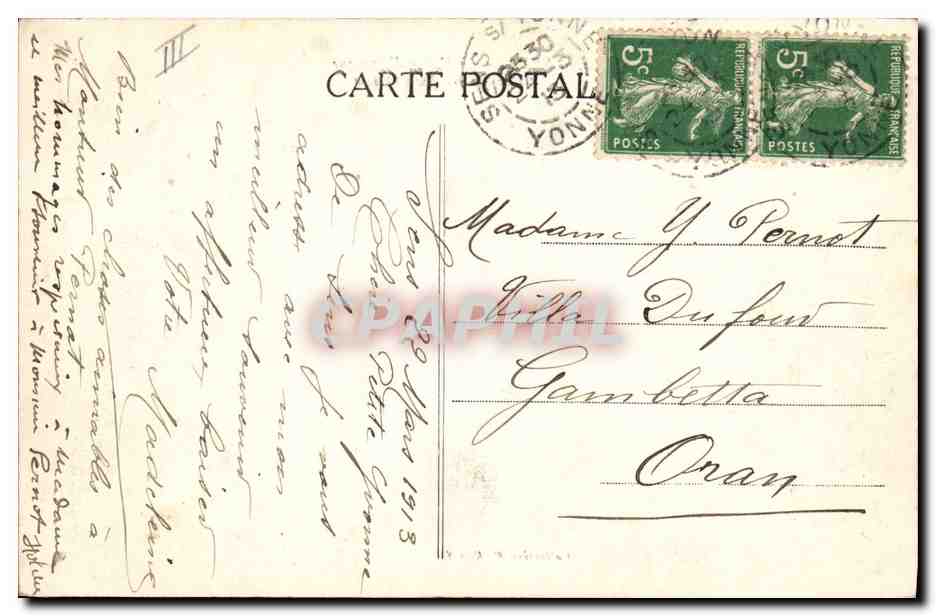 CARTE POSTALE
5c
REPUBLIQUE FRANÇAISE
POSTES
5c
REPUBLIQUE FRANÇAISE
POSTES
SENS S/YONNE
YONNE
III
Madame Y. Pernot
Villa Dufour
Gambetta
Oran
Sens 29 Mars 1913
Chère Petite Yvonne
De Sens je vous
adresse avec mon
meilleur souvenir
un affectueux baiser
Votre Madeleine
Bien des choses aimables à
Monsieur Pernot
Mes hommages respectueux à Madame
et meilleur souvenir à Monsieur Pernot
CPAPHIL